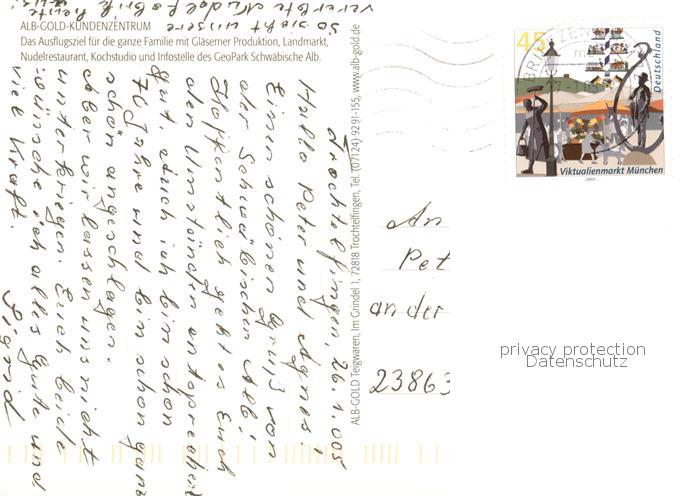 ALB-GOLD-KUNDENZENTRUM
Das Ausflugsziel für die ganze Familie mit Gläserner Produktion, Landmarkt,
Nudelrestaurant, Kochstudio und Infostelle des GeoPark Schwäbische Alb.
So sieht unsere
heute aus!
Trochtelfingen, 26.1.005
Hallo Peter und Agnes!
Einen schönen Gruß von
der Schwäbischen Alb!
Hoffentlich geht es Euch
den Umständen entsprechend
gut. Auch ich bin schon
76 Jahre und bin schon ganz
schön angeschlagen.
Aber wir lassen uns nicht
unterkriegen. Euch beide
wünsche ich alles Gute und
viel Kraft.
Sigrid
ALB-GOLD Teigwaren, Im Grindel 1, 72818 Trochtelfingen, Tel. (07124) 9291-155, www.alb-gold.de
45
Deutschland
Viktualienmarkt München
2003
BRIEFZENTRUM
An
Pet
an der
23863
privacy protection
Datenschutz